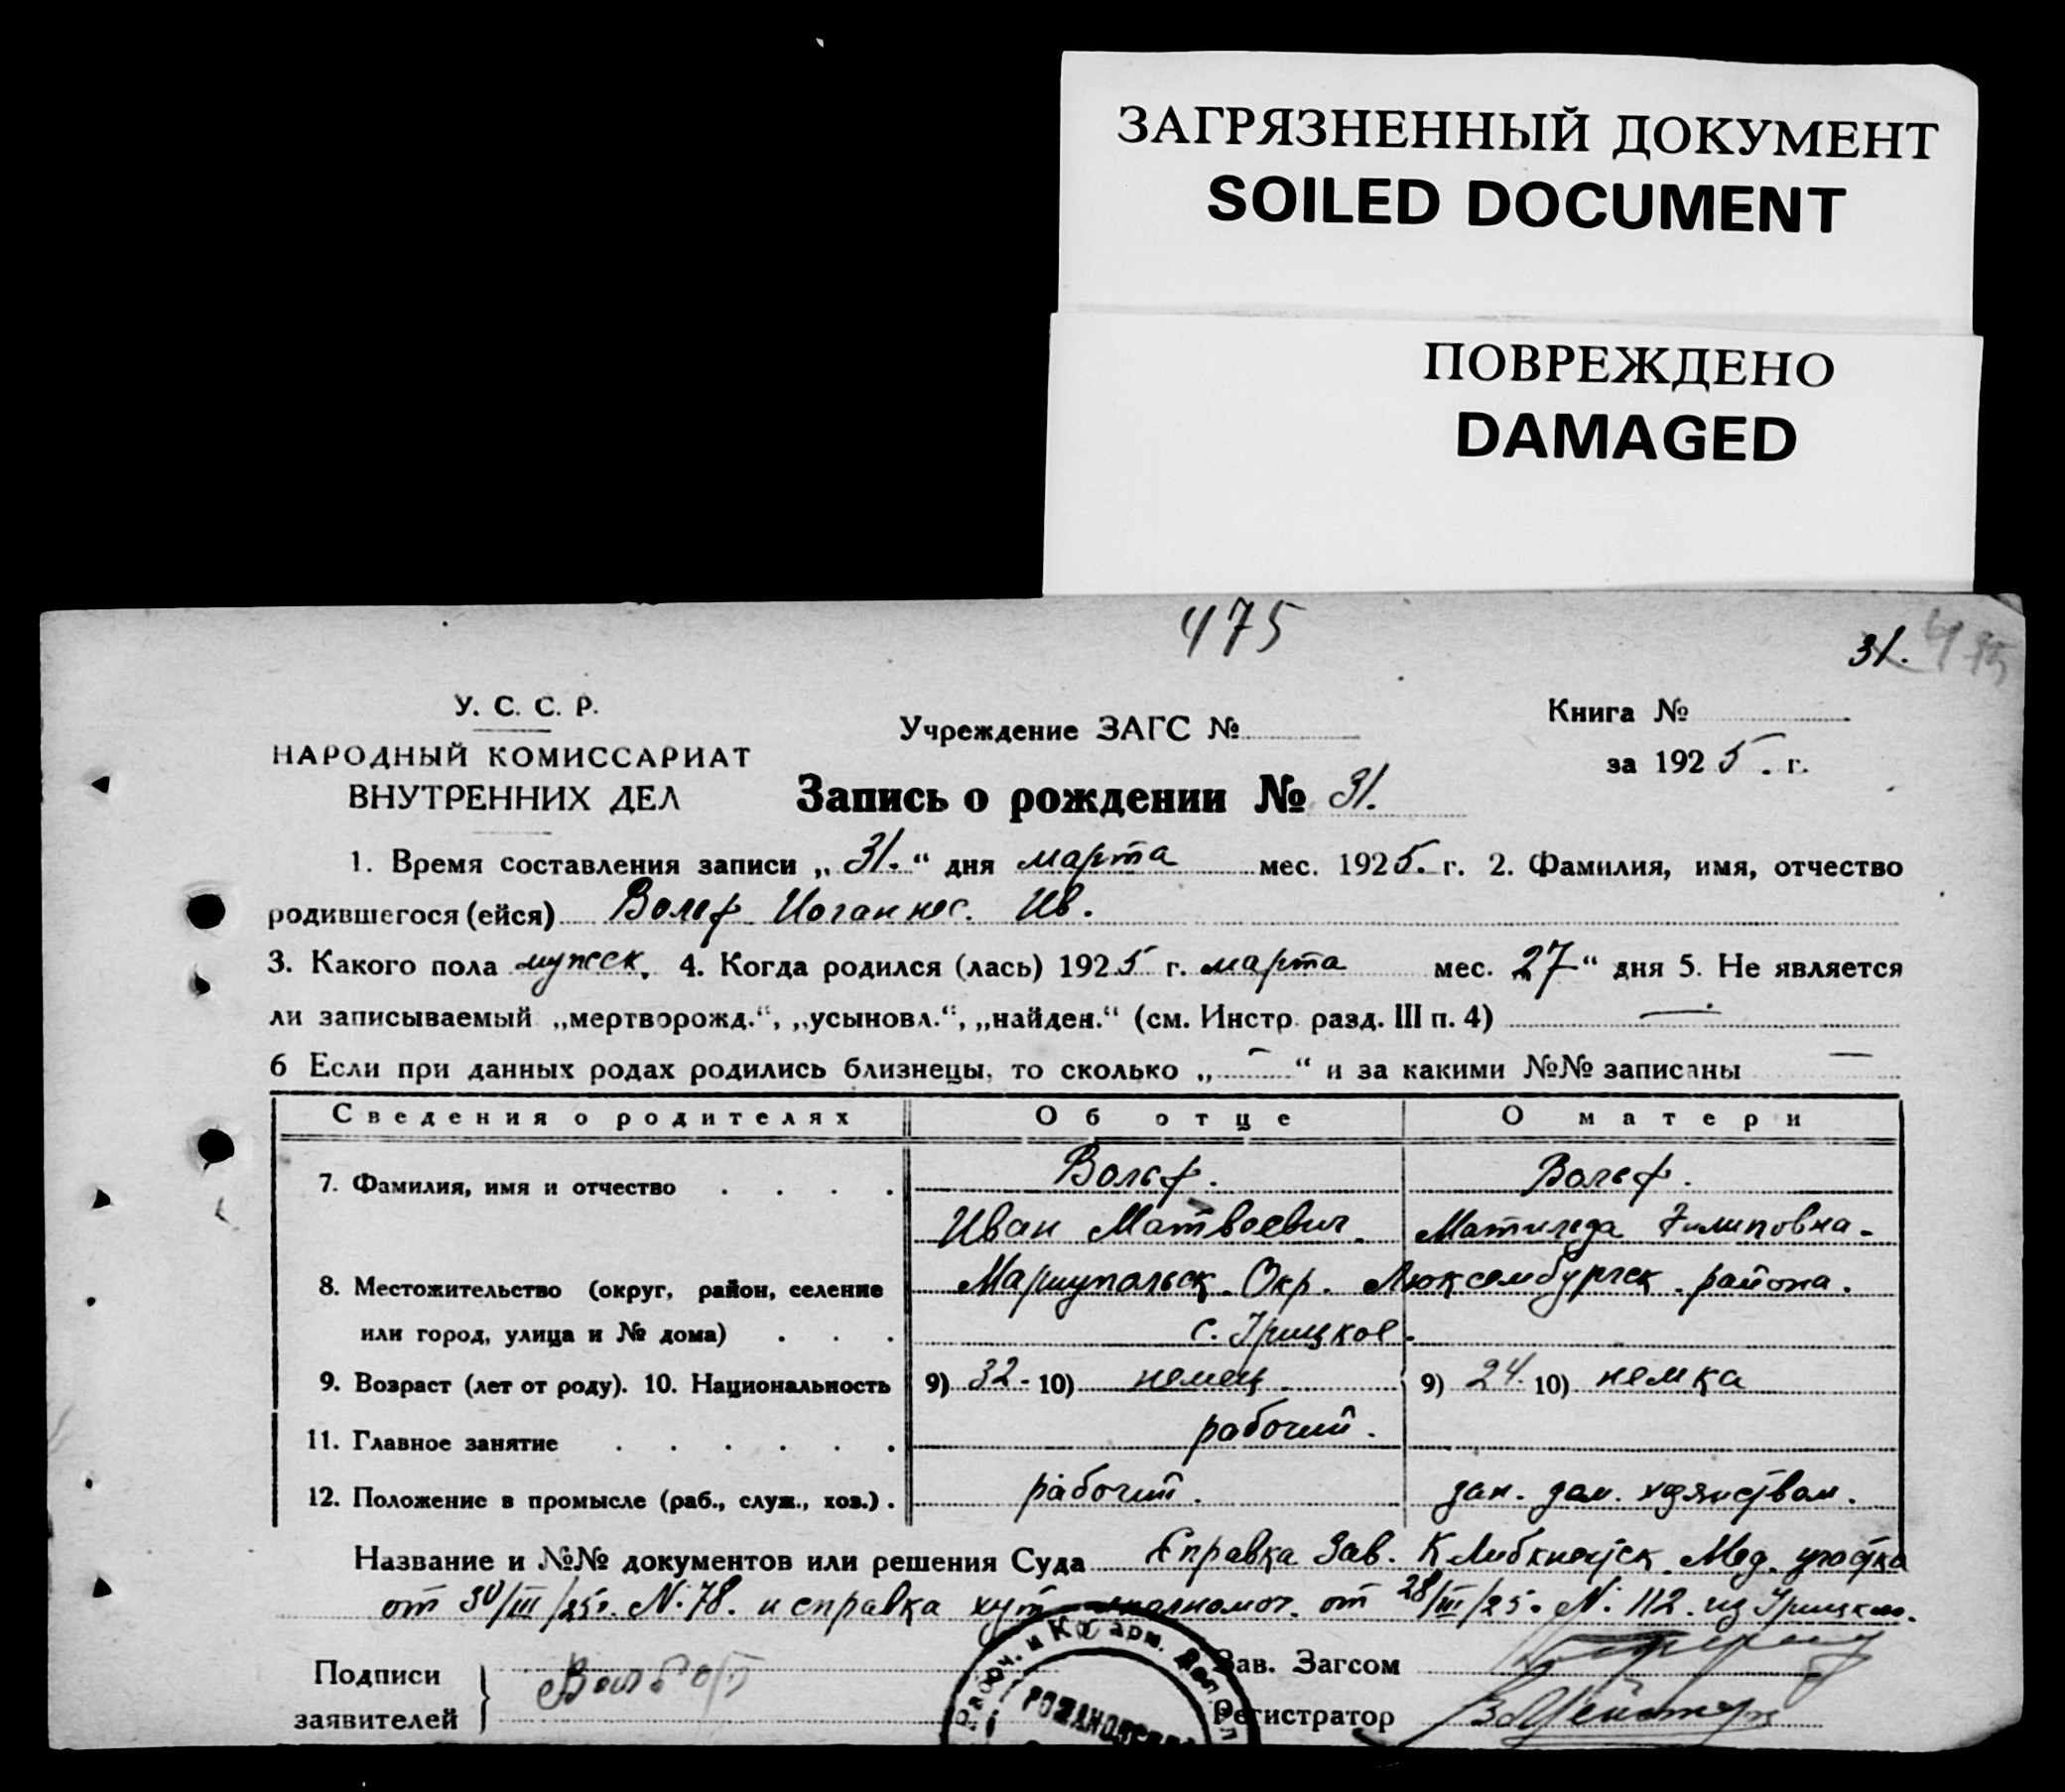 ЗАГРЯЗНЕННЫЙ ДОКУМЕНТ
SOILED DOCUMENT
ПОВРЕЖДЕНО
DAMAGED
475
31.
У. С. С. Р.
НАРОДНЫЙ КОМИССАРИАТ
ВНУТРЕННИХ ДЕЛ
Учреждение ЗАГС №
Книга №
за 1925. г.
Запись о рождении № 31.
1. Время составления записи „31.“ дня марта мес. 1925. г. 2. Фамилия, имя, отчество
родившегося (ейся) Вольф Иоганнес. Ив.
3. Какого пола мужск. 4. Когда родился (лась) 1925 г. марта мес. 27“ дня 5. Не является
ли записываемый „мертворожд.“, „усыновл.“, „найден.“ (см. Инстр. разд. III п. 4) —
6 Если при данных родах родились близнецы, то сколько „—“ и за какими №№ записаны —
Сведения о родителях Об отце О матери
7. Фамилия, имя и отчество Вольф. Вольф.
Иван Матвеевич. Матильда Филиповна.
8. Местожительство (округ, район, селение Мариупольск. Окр. Люксембургск. района.
или город, улица и № дома) с. Грицкое.
9. Возраст (лет от роду). 10. Национальность 9) 32. 10) немец. 9) 24. 10) немка
11. Главное занятие рабочий.
12. Положение в промысле (раб., служ., хоз.) рабочий. дом. хозяйством.
Название и №№ документов или решения Суда Справка Зав. К Либкнехтск. Мед. участка
от 30/III/25г. № 78. и справка хут. от 28/III/25. № 112. из
Подписи
заявителей
Зав. Загсом
Регистратор